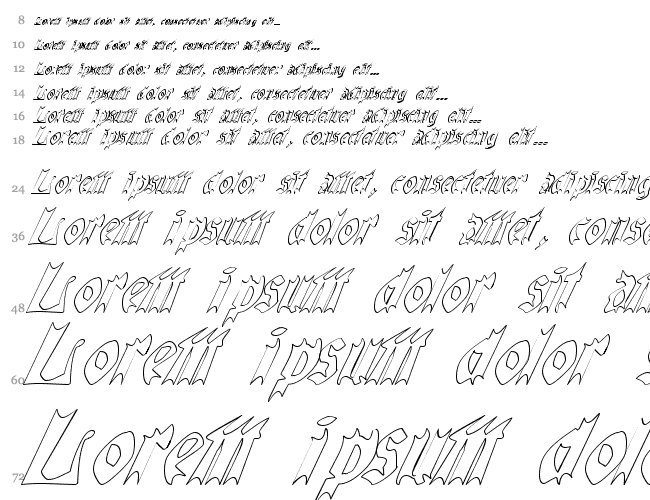 8 Lorem ipsum dolor sit amet, consectetuer adipiscing elit...
10 Lorem ipsum dolor sit amet, consectetuer adipiscing elit...
12 Lorem ipsum dolor sit amet, consectetuer adipiscing elit...
14 Lorem ipsum dolor sit amet, consectetuer adipiscing elit...
16 Lorem ipsum dolor sit amet, consectetuer adipiscing elit...
18 Lorem ipsum dolor sit amet, consectetuer adipiscing elit...
24 Lorem ipsum dolor sit amet, consectetuer adipiscing
36 Lorem ipsum dolor sit amet, conse
48 Lorem ipsum dolor sit am
60 Lorem ipsum dolor s
72 Lorem ipsum dol